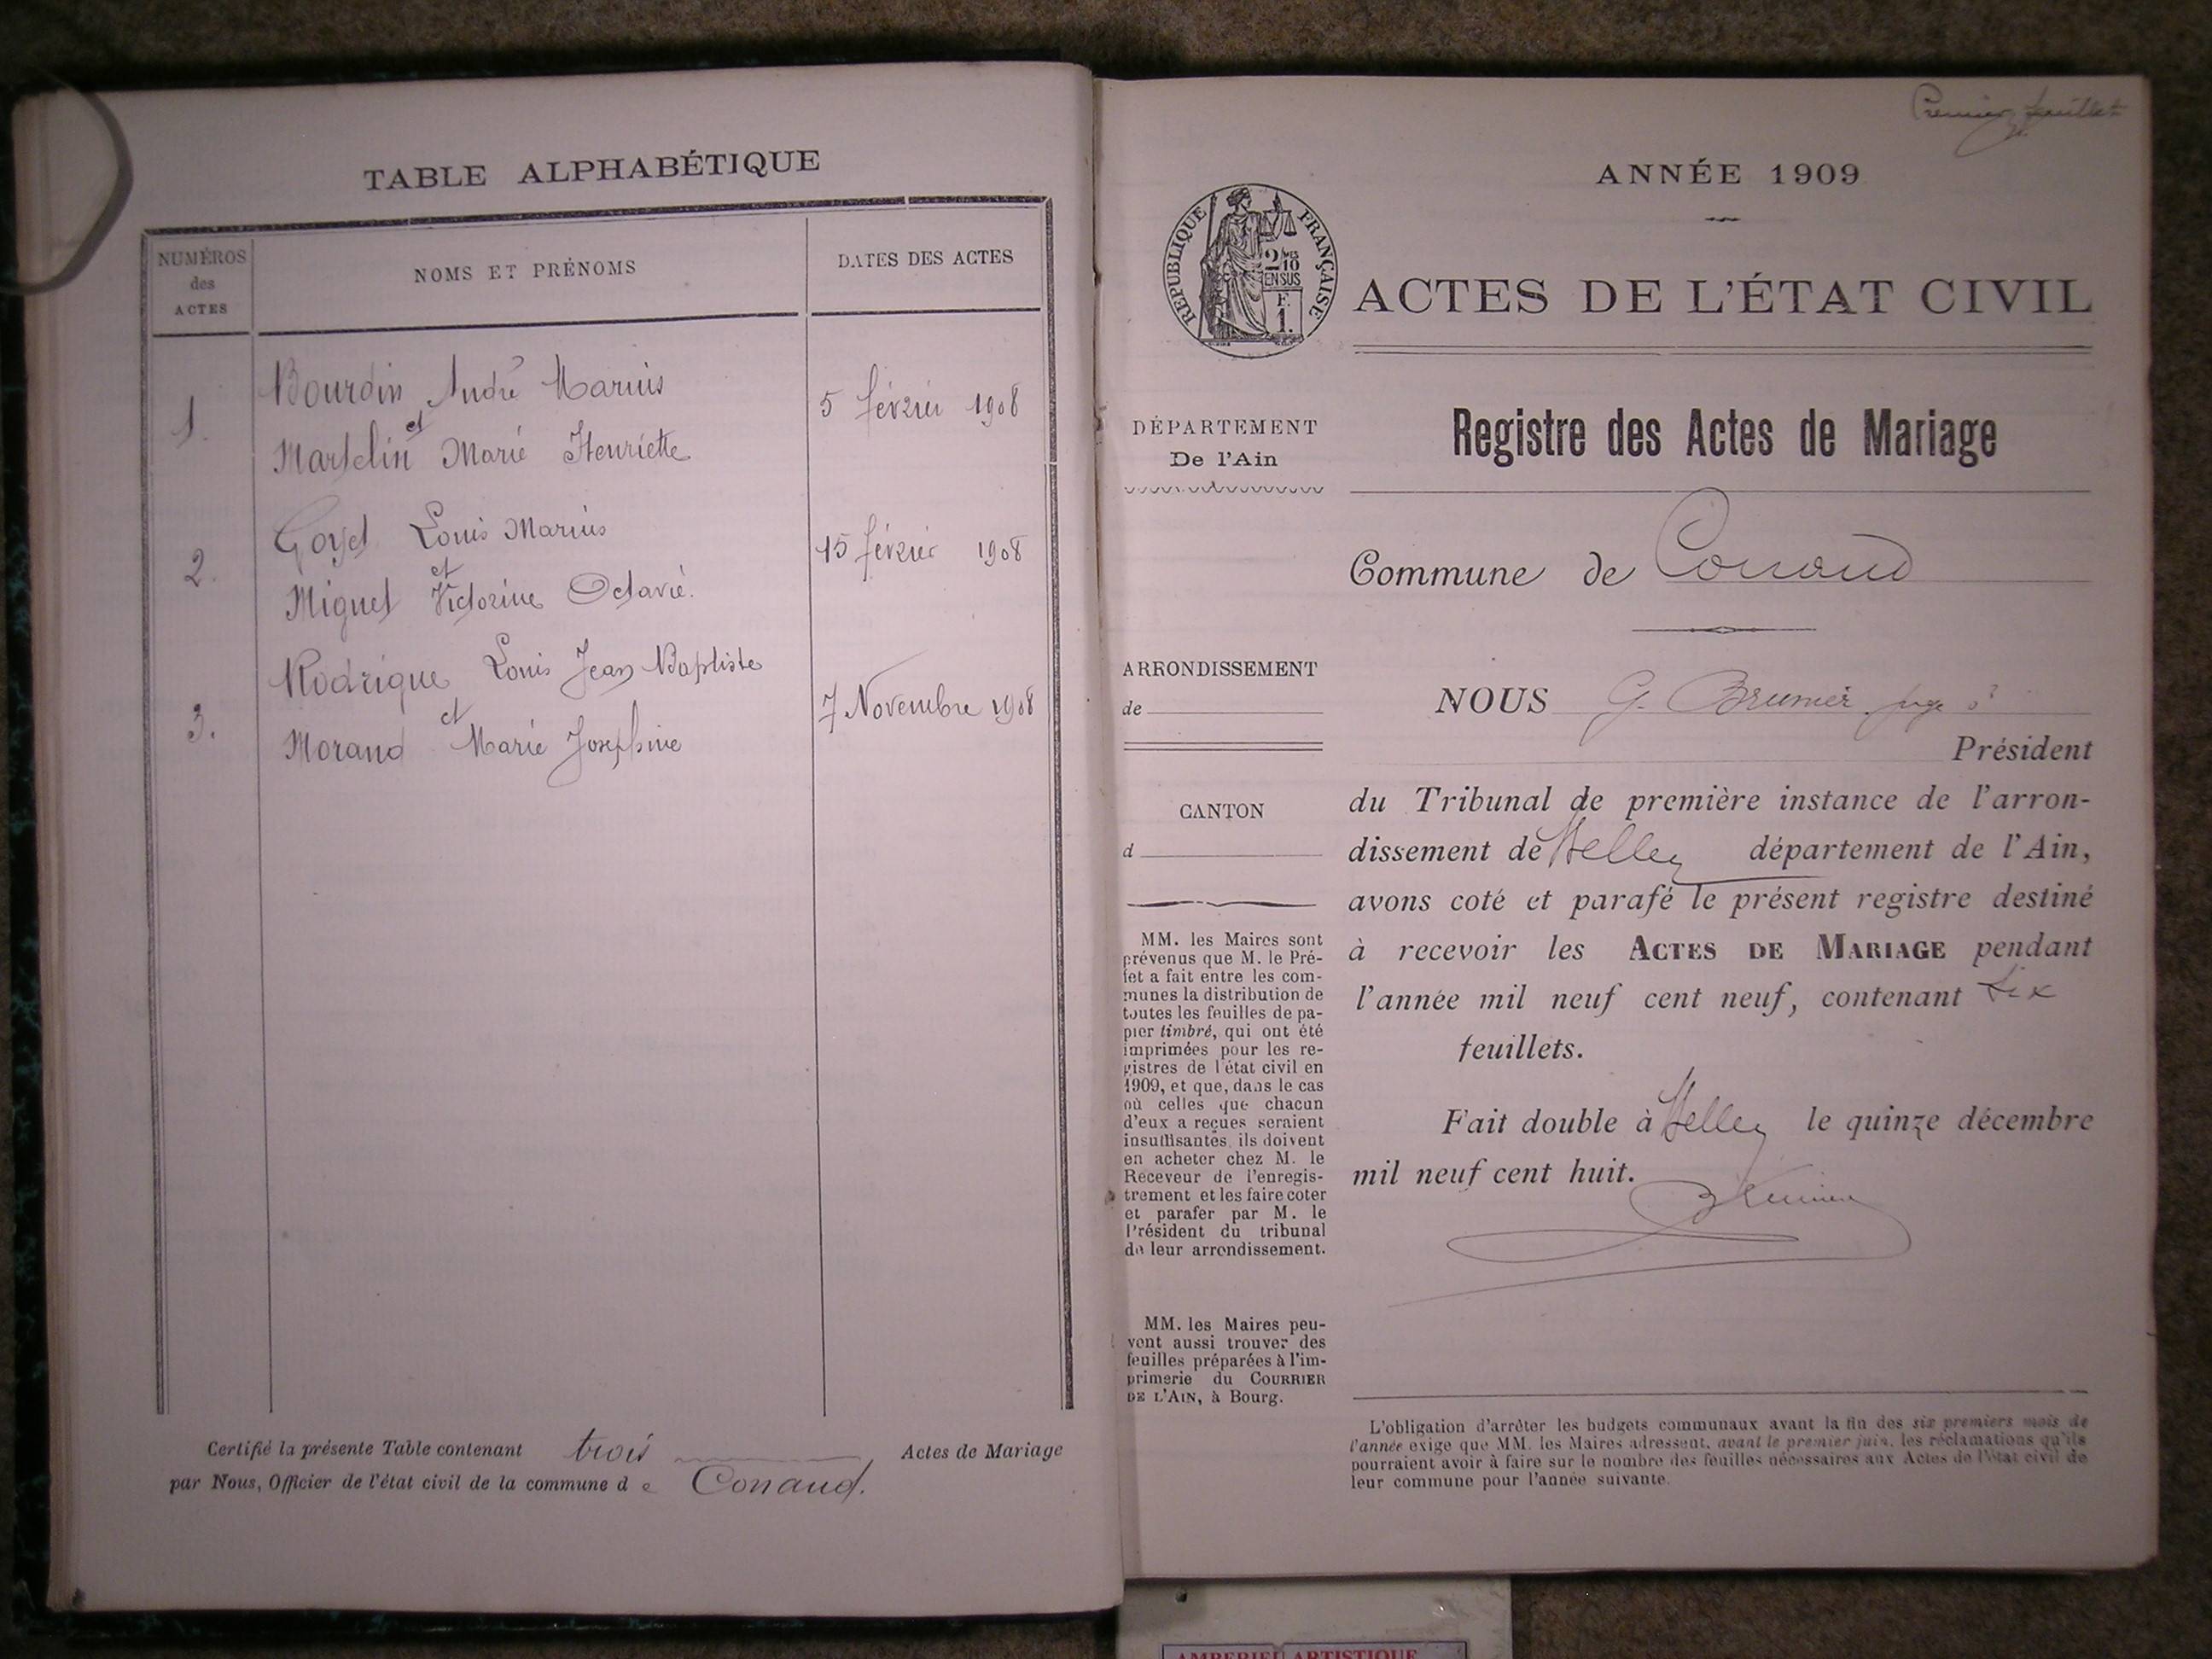 TABLE ALPHABÉTIQUE
NUMÉROS
des
ACTES
NOMS ET PRÉNOMS
DATES DES ACTES
1.
Bourdin André Marius
et
Martelin Marie Henriette
5 février 1908
2.
Goyet Louis Marius
et
Miguet Victorine Octavie.
15 février 1908
3.
Rodrigue Louis Jean Baptiste
et
Morand Marie Josephine
7 Novembre 1908
Certifié la présente Table contenant trois Actes de Mariage
par Nous, Officier de l'état civil de la commune de Conand.
Premier feuillet
ANNÉE 1909
RÉPUBLIQUE FRANÇAISE
2/10
EN SUS
F.
1.
ACTES DE L'ÉTAT CIVIL
DÉPARTEMENT
De l'Ain
Registre des Actes de Mariage
Commune de Conand
ARRONDISSEMENT
de
CANTON
d
MM. les Maires sont
prévenus que M. le Pré-
fet a fait entre les com-
munes la distribution de
toutes les feuilles de pa-
pier timbré, qui ont été
imprimées pour les re-
gistres de l'état civil en
1909, et que, dans le cas
où celles que chacun
d'eux a reçues seraient
insuffisantes, ils doivent
en acheter chez M. le
Receveur de l'enregis-
trement et les faire coter
et parafer par M. le
Président du tribunal
de leur arrondissement.
MM. les Maires peu-
vent aussi trouver des
feuilles préparées à l'im-
primerie du COURRIER
DE L'AIN, à Bourg.
NOUS G. Brunier juge
Président
du Tribunal de première instance de l'arron-
dissement de Belley département de l'Ain,
avons coté et parafé le présent registre destiné
à recevoir les ACTES DE MARIAGE pendant
l'année mil neuf cent neuf, contenant six
feuillets.
Fait double à Belley le quinze décembre
mil neuf cent huit.
Brunier
L'obligation d'arrêter les budgets communaux avant la fin des six premiers mois de
l'année exige que MM. les Maires adressent, avant le premier juin, les réclamations qu'ils
pourraient avoir à faire sur le nombre des feuilles nécessaires aux Actes de l'état civil de
leur commune pour l'année suivante.
AMBERIEU ARTISTIQUE